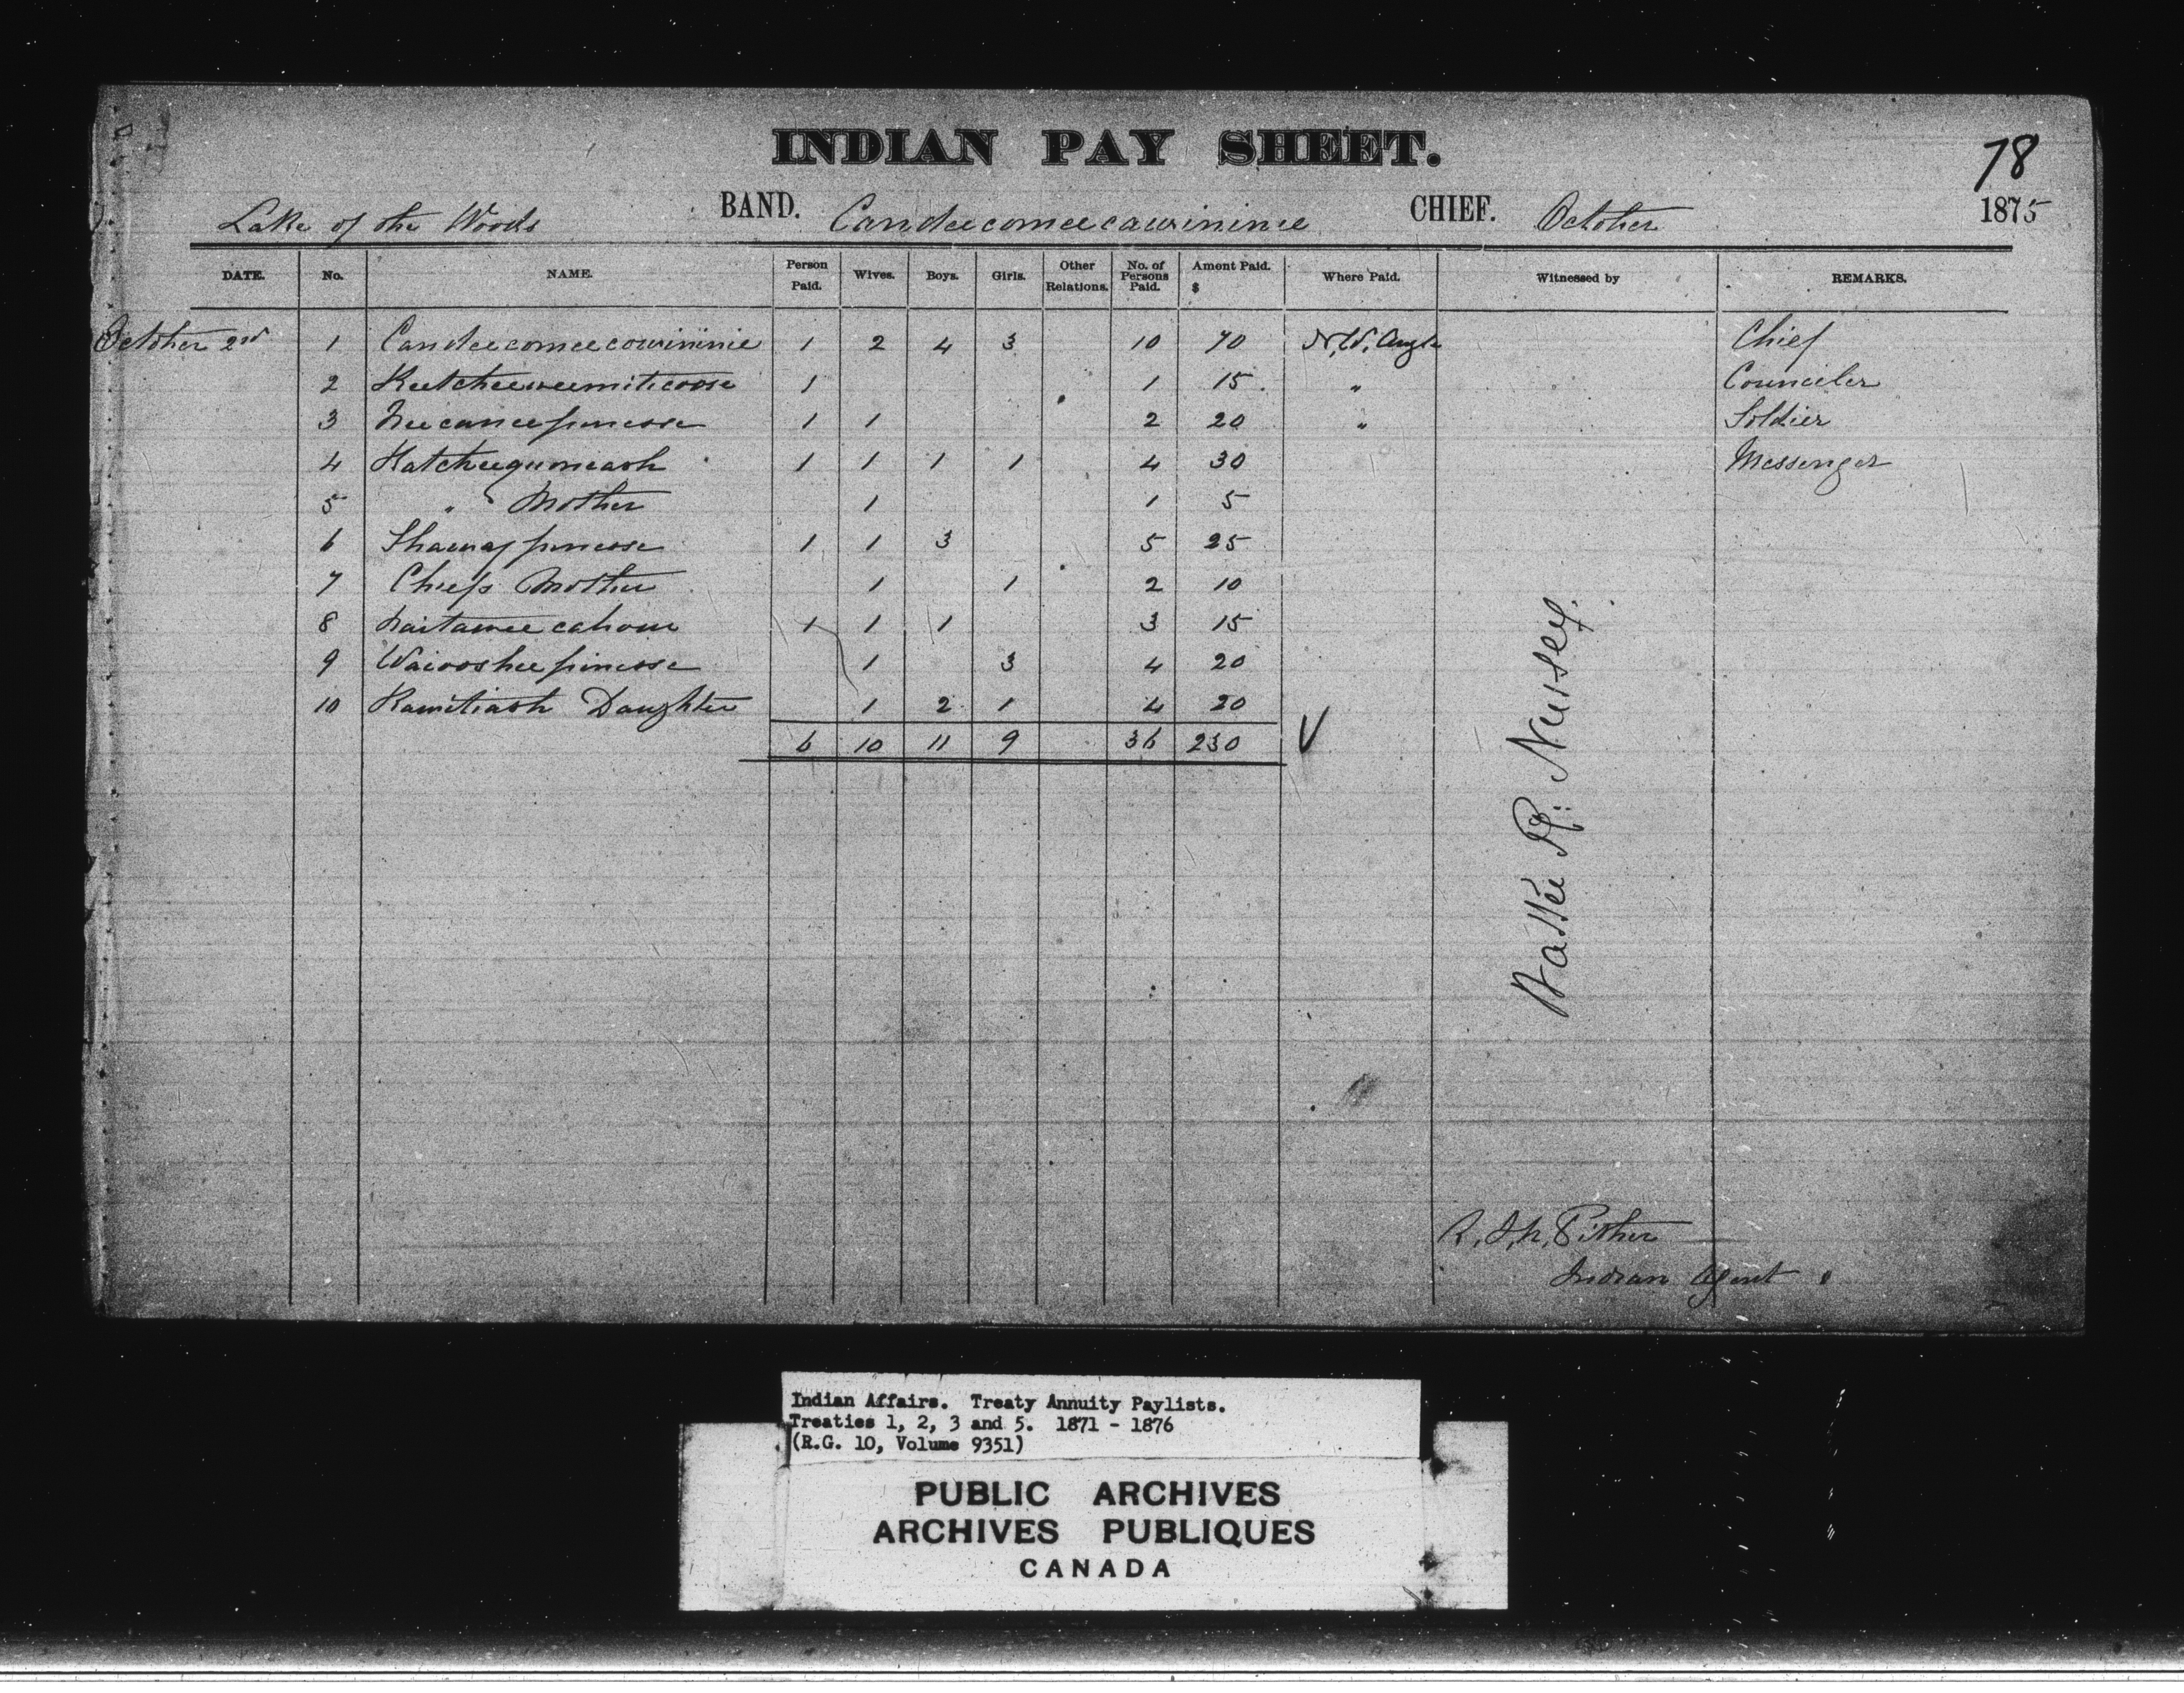 INDIAN PAY SHEET.
78
Lake of the Woods BAND. Candeecomeecawininie CHIEF. October 1875
DATE. No. NAME. Person Paid. Wives. Boys. Girls. Other Relations. No. of Persons Paid. Amont Paid. $ Where Paid. Witnessed by REMARKS.
October 2nd 1 Candeecomeecowininie 1 2 4 3 10 70 N.W. Angle Chief
2 Keetcheeweemiticoose 1 1 15 " Counceler
3 Neecaneepinesse 1 1 2 20 " Soldier
4 Katcheegumeash 1 1 1 1 4 30 Messenger
5 " Mother 1 1 5
6 1 1 3 5 25
7 Chiefs Mother 1 1 2 10
8 1 1 1 3 15
9 Waiwosheepinesse 1 3 4 20
10 Kamitiash Daughter 1 2 1 4 20
6 10 11 9 36 230 V
R: Nursey.
R. J. N. Pither
Indian Agent
Indian Affairs. Treaty Annuity Paylists.
Treaties 1, 2, 3 and 5. 1871 - 1876
(R.G. 10, Volume 9351)
PUBLIC ARCHIVES
ARCHIVES PUBLIQUES
CANADA